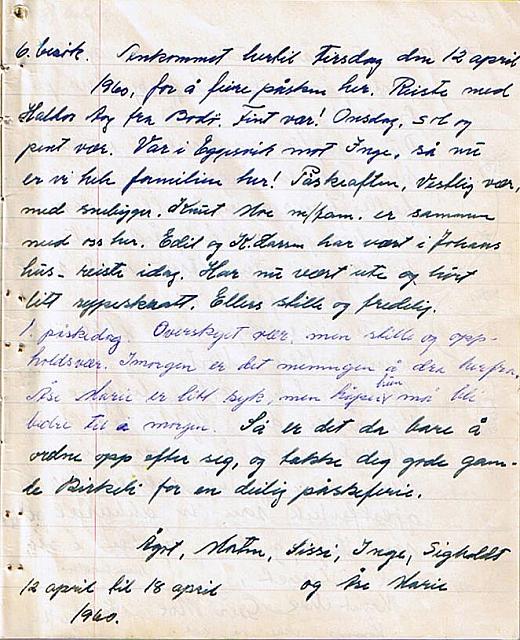 6. besøk. Ankommet hertil tirsdag den 12 april
1960, for å feire påsken her. Reiste med
Halldor Aag fra Bodø. Fint vær! Onsdag, sol og
pent vær. Var i Eggesvik mot Inge, så nu
er vi hele familien her! Påskeaften, vestlig vær,
med snebyger. Knut Moe m/fam. er sammen
med oss her. Edil og K. Larsen har vært i Johans
hus - reiste idag. Har nu vært ute og hørt
litt rypeskratt. Ellers stille og fredelig.
1. påskedag. Overskyet vær, men stille og opp-
holdsvær. Imorgen er det meningen å dra herfra.
Åse Marie er litt syk, men håper hun må bli
bedre til i morgen. Så er det da bare å
ordne opp efter seg, og takke deg gode gam-
le Birkeli for en deilig påskeferie.
Ågot, Martin, Sissi, Inge, Sigholdt
12 april til 18 april og Åse Marie
1960.